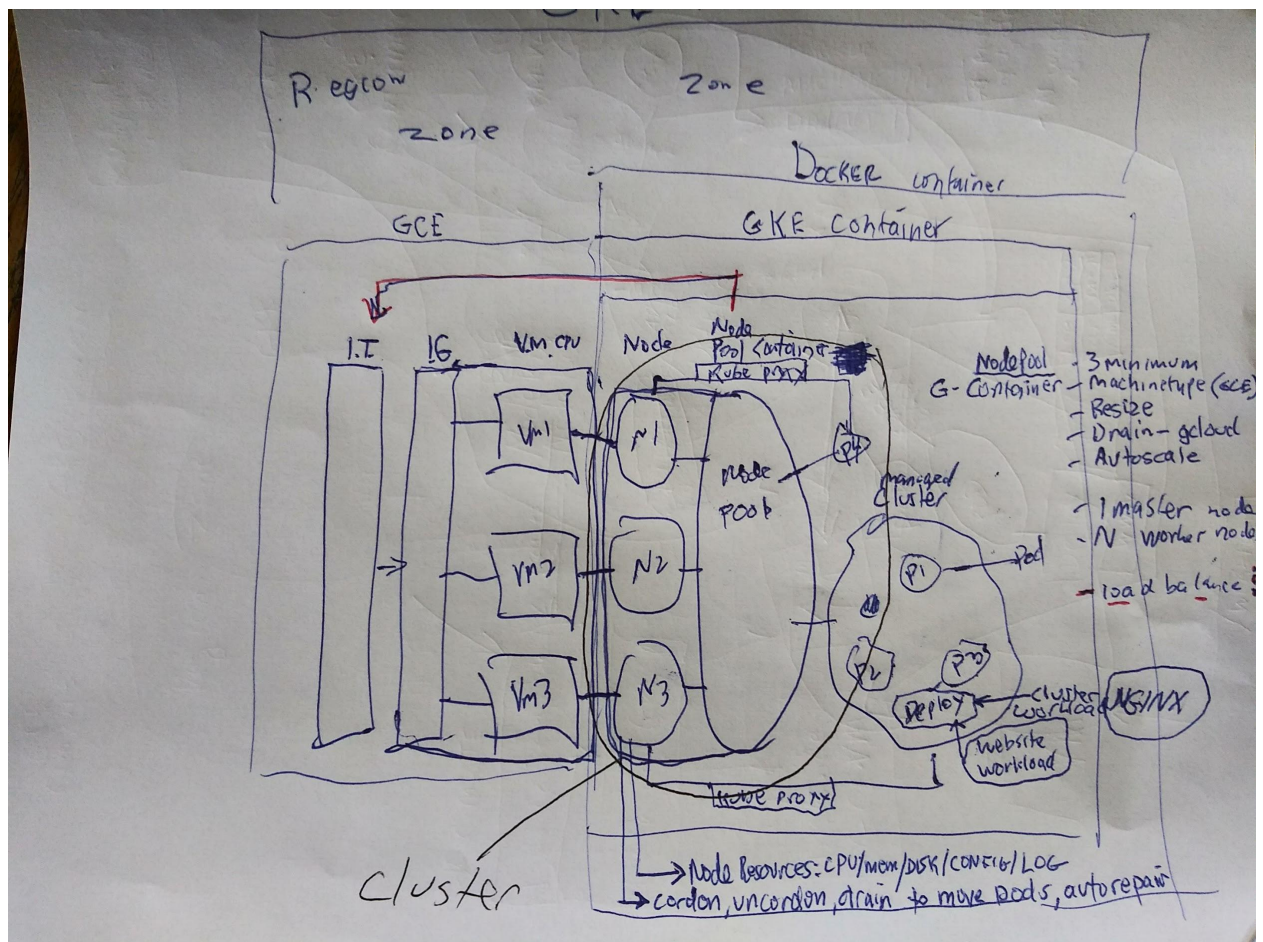 GKE
Region
zone
zone
DOCKER container
GCE
GKE Container
I.T
IG
V.M. CPU
Node
Node
Pool Container
Kube proxy
Vm1
Vm2
Vm3
N1
N2
N3
Node
Pool
P4
managed
Cluster
P1
Pod
P2
P3
Deploy
cluster
workload
NGINX
website
workload
Kube proxy
Nodepool
G-Container
- 3 minimum
- machinetype (GCE)
- Resize
- Drain-gcloud
- Autoscale
- 1 master node
- N worker node
- load balance
cluster
Node Resources: CPU/mem/DISK/CONFIG/LOG
cordon, uncordon, drain to move pods, autorepair